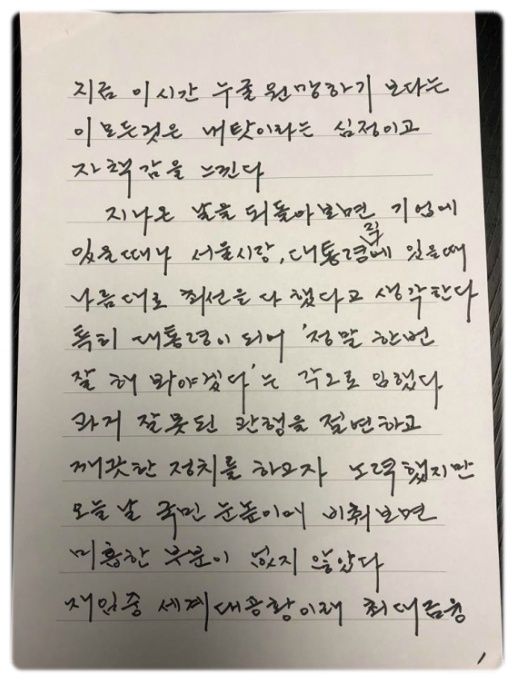 지금 이시간 누굴 원망하기 보다는
이 모든것은 내탓이라는 심정이고
자책감을 느낀다
지나온 날을 되돌아보면, 기업에
있을때나 서울시장, 대통령직에 있을때
나름대로 최선을 다했다고 생각한다
특히 대통령이 되어 '정말 한번
잘 해 봐야겠다'는 각오로 임했다.
과거 잘못된 관행을 절연하고
깨끗한 정치를 하고자 노력했지만
오늘 날 국민 눈높이에 비춰보면
미흡한 부분이 없지 않았다
재임중 세계대공황이래 최대금융
1